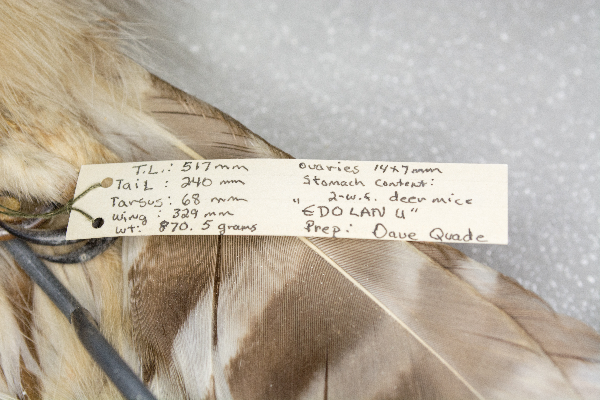 T.L.: 517 mm
Tail: 240 mm
Tarsus: 68 mm
Wing: 329 mm
Wt: 870.5 grams
Ovaries 14x7mm
Stomach content:
2-w.f. deer mice
"EDOLAN U"
Prep: Dave Quade